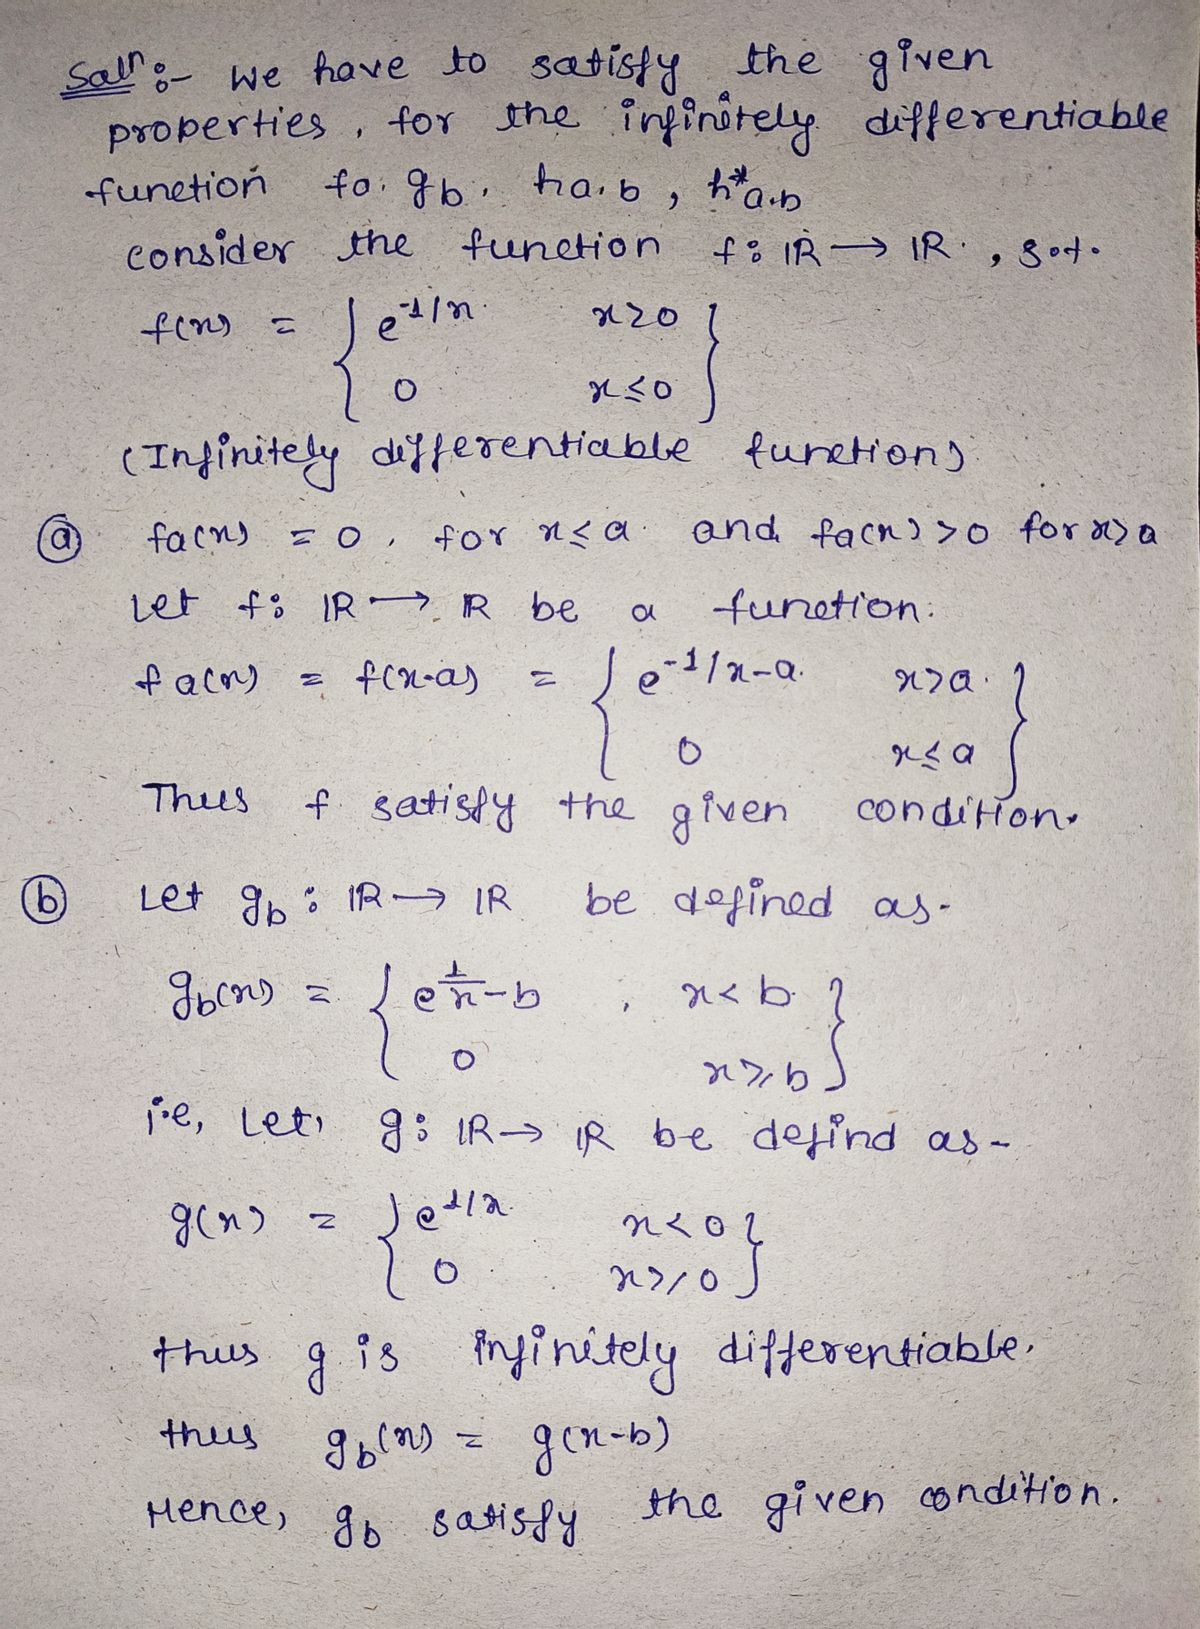 Soln:- We have to satisfy the given
properties, for the infinitely differentiable
function fa. gb. ha.b, h*a.b
consider the function f: IR → IR, s.t.
f(x) = { e^-1/x x>0
0 x≤0 }
(Infinitely differentiable function)
(a) fa(x) = 0, for x≤a and fa(x)>0 for x>a
Let f: IR → IR be a function.
fa(x) = f(x-a) = { e^-1/x-a x>a
0 x≤a }
Thus f satisfy the given condition.
(b) Let gb: IR → IR be defined as-
gb(x) = { e^1/x-b, x<b
0 x≥b }
i.e, Let, g: IR → IR be defind as-
g(x) = { e^1/x x<0
0 x≥0 }
thus g is infinitely differentiable.
thus gb(x) = g(x-b)
Hence, gb satisfy the given condition.